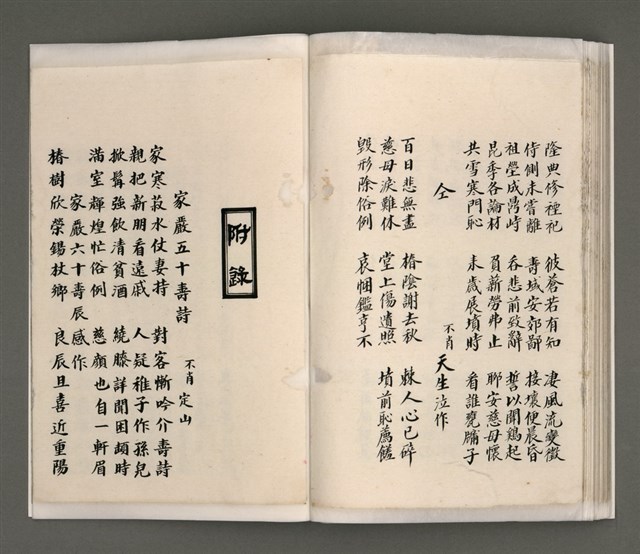 隆典修禋祀 彼蒼若有知 淒風流變徵
侍側未嘗離 壽域安郊鄙 接壤便晨昏
祖塋成鼎峙 吞悲前致辭 誓以聞鷄起
昆季各論材 負薪勞弗止 聊安慈母懷
共雪寒門恥 未歲展墳時 看誰甕牖子
仝 不肖 天生 泣作
百日悲無盡 椿陰謝去秋 棘人心已碎
慈母淚難休 堂上傷遺照 墳前恥薦饈
毀形除俗例 哀悃鑑亨不
附錄
家嚴五十壽詩 不肖 定山
家寒菽水仗妻持 對客慚吟介壽詩
親把新朋看遠戚 人疑稚子作孫兒
掀髯強飲清貧酒 繞膝詳聞困頓時
滿室輝煌忙俗例 慈顏也自一軒眉
家嚴六十壽辰感作
椿樹欣榮錫杖鄉 良辰且喜近重陽